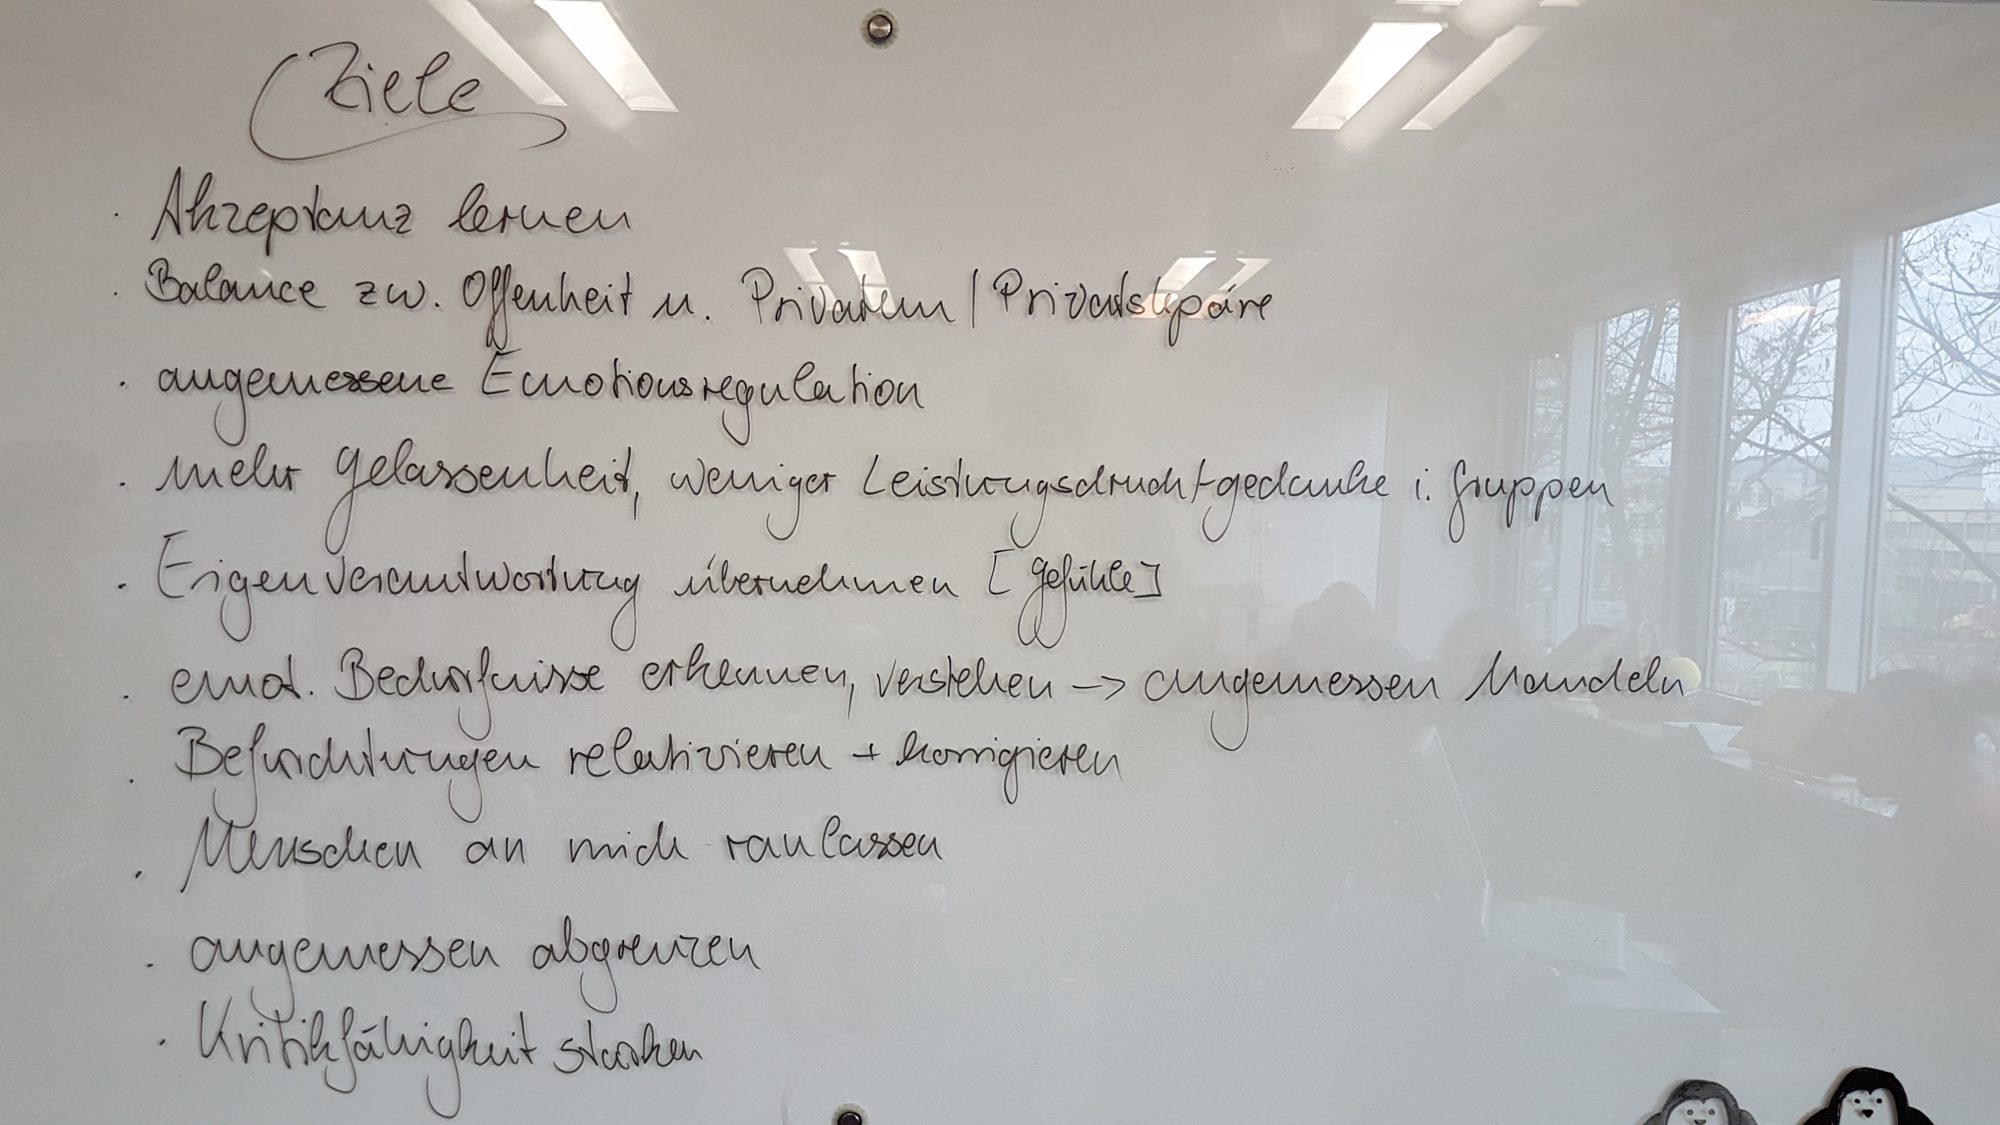 Ziele
· Akzeptanz lernen
· Balance zw. Offenheit u. Privatem / Privatsspäre
· angemessene Emotionsregulation
· mehr Gelassenheit, weniger Leistungsdruck/-gedanke i. Gruppen
· Eigenverantwortung übernehmen [Gefühle]
· emot. Bedürfnisse erkennen, verstehen -> angemessen handeln
· Befürchtungen relativieren + korrigieren
· Menschen an mich ranlassen
· angemessen abgrenzen
· Kritikfähigkeit stärken